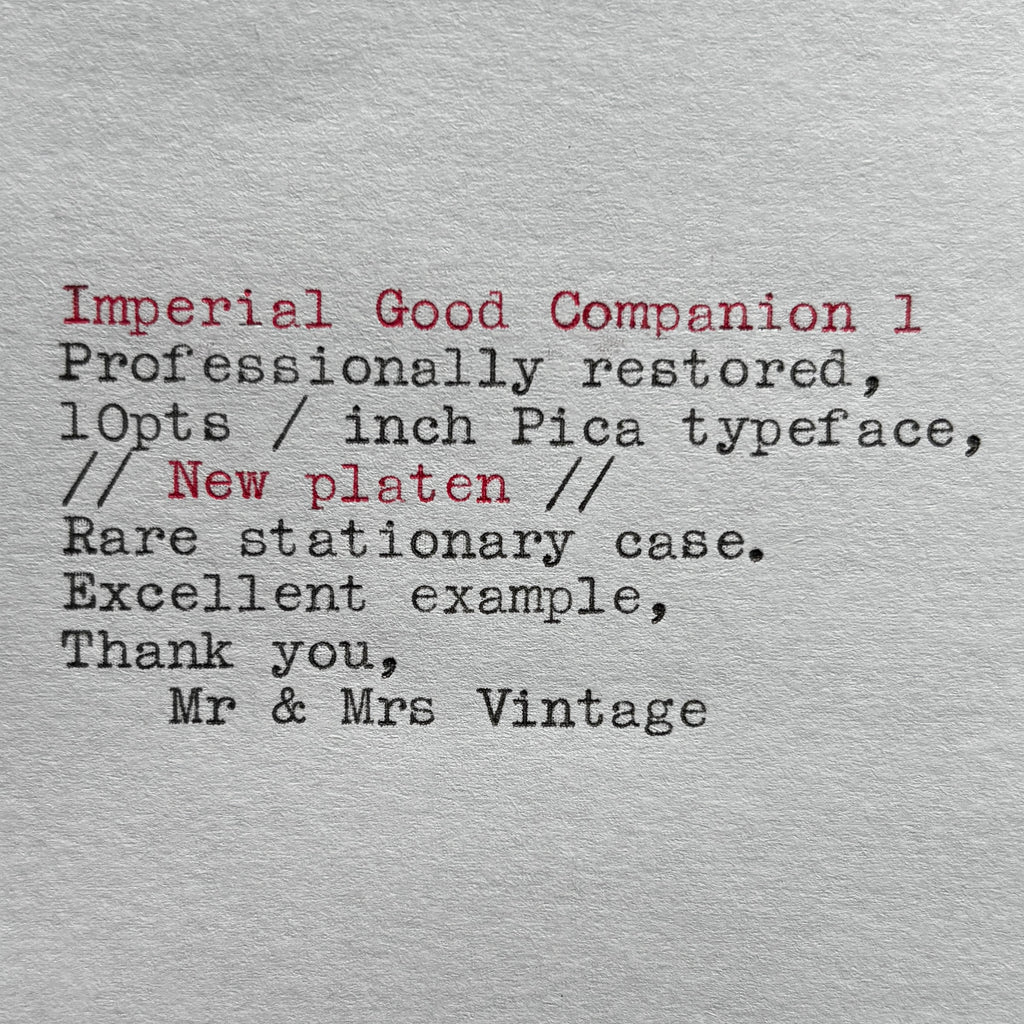 Imperial Good Companion 1
Professionally restored,
10pts / inch Pica typeface,
// New platen //
Rare stationary case.
Excellent example,
Thank you,
Mr & Mrs Vintage